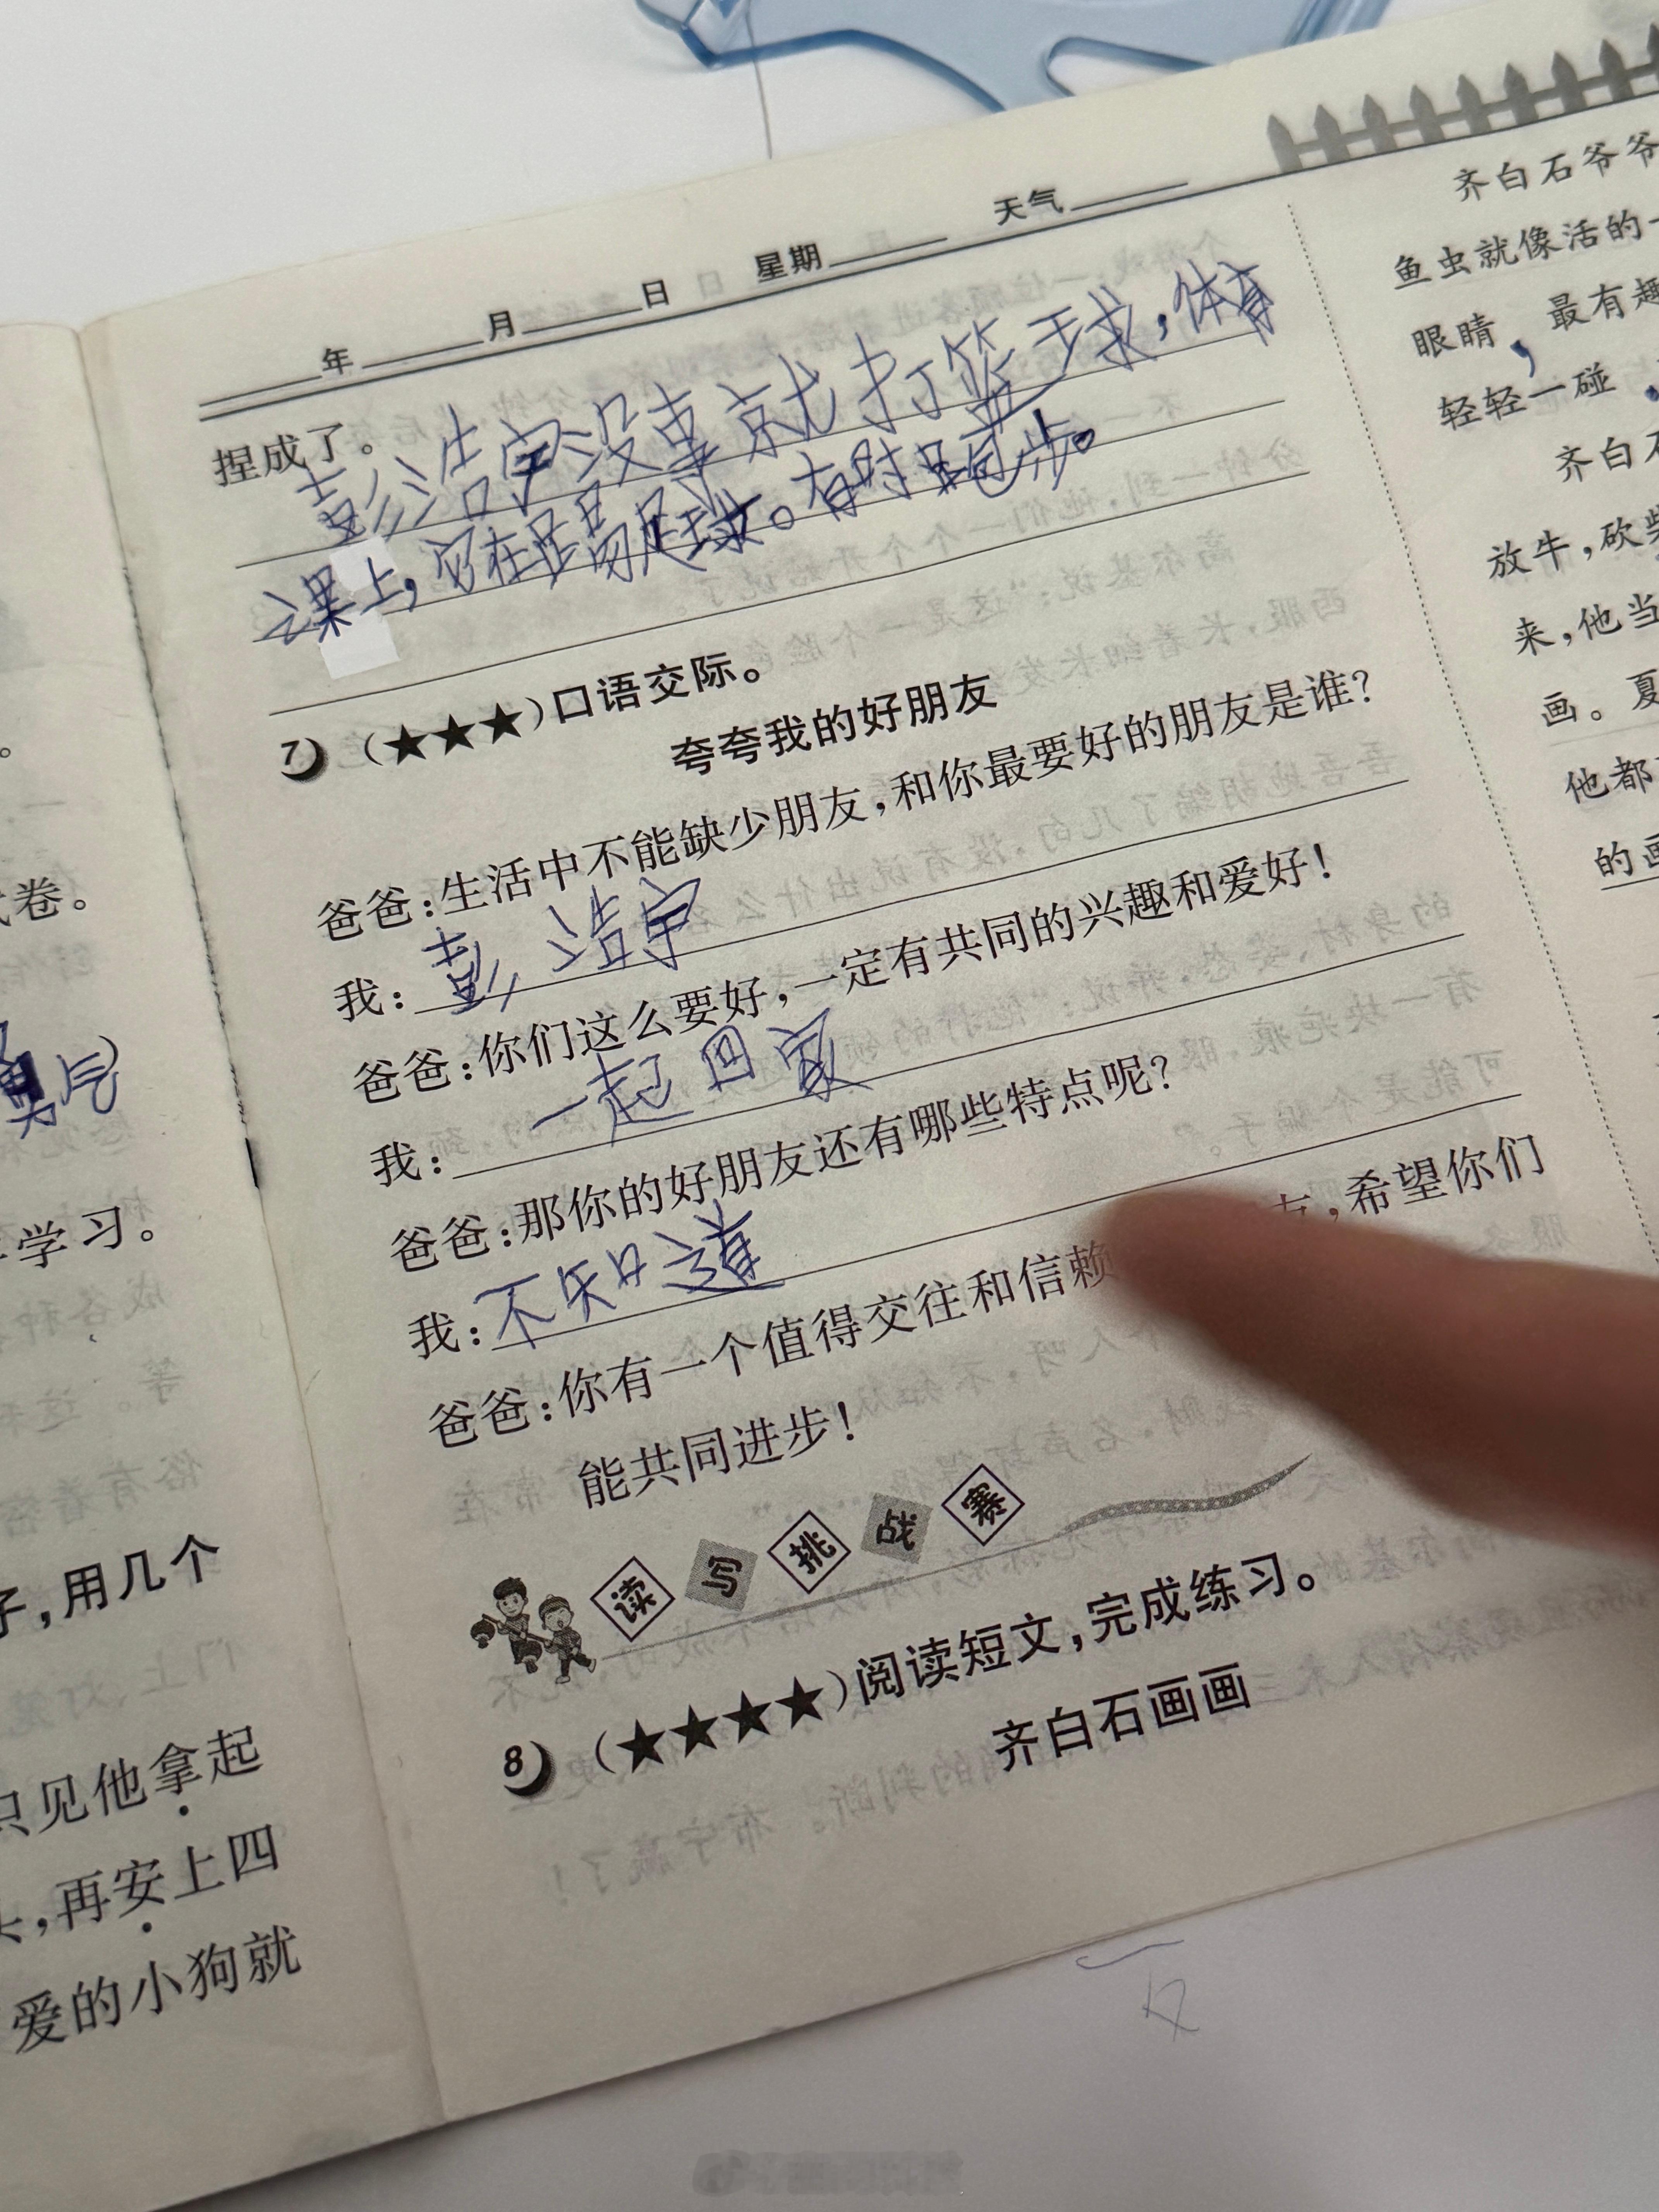 年 月 日 星期 天气
捏成了。
彭浩宇没事就打篮球，体育
之课上，它在踢足球。有时跑步。
7（★★★）口语交际。
夸夸我的好朋友
爸爸：生活中不能缺少朋友，和你最要好的朋友是谁？
我：彭浩宇
爸爸：你们这么要好，一定有共同的兴趣和爱好！
我：一起回家
爸爸：那你的好朋友还有哪些特点呢？
我：不知道
爸爸：你有一个值得交往和信赖 友，希望你们
能共同进步！
读写挑战赛
8（★★★★）阅读短文，完成练习。
齐白石画画
卷。
勇气
学习。
子，用几个
只见他拿起
，再安上四
爱的小狗就
齐白石爷爷
鱼虫就像活的一
眼睛，最有趣
轻轻一碰，
齐白石
放牛，砍柴
来，他当
画。夏
他都
的画